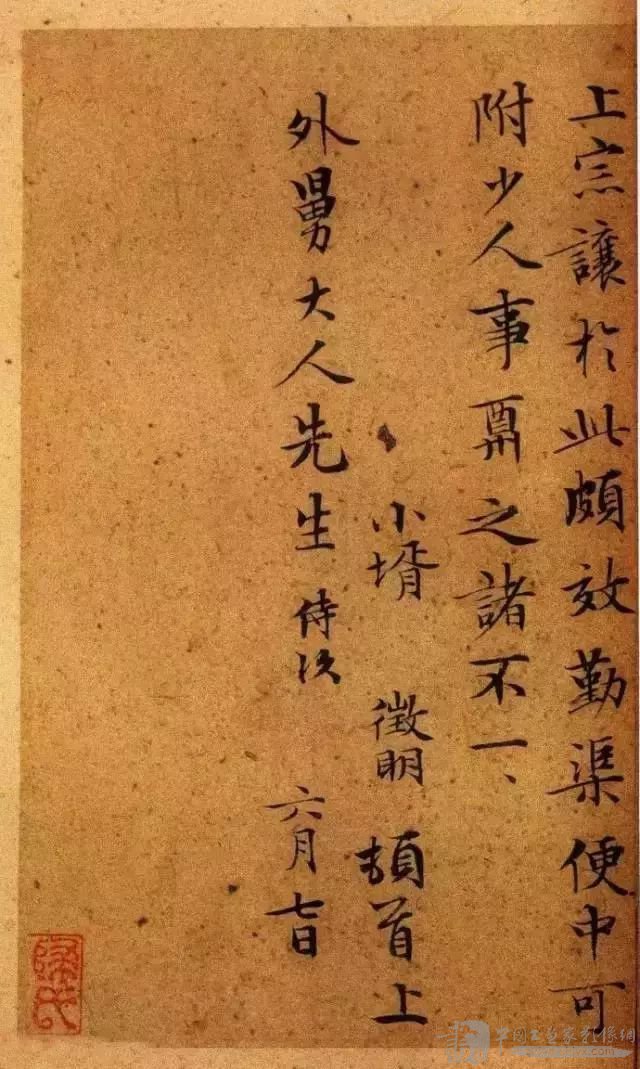 上宗讓於此頗效勤渠便中可
附少人事畀之諸不一、
小壻 徵明 頓首上
外舅大人先生 侍次
六月七日